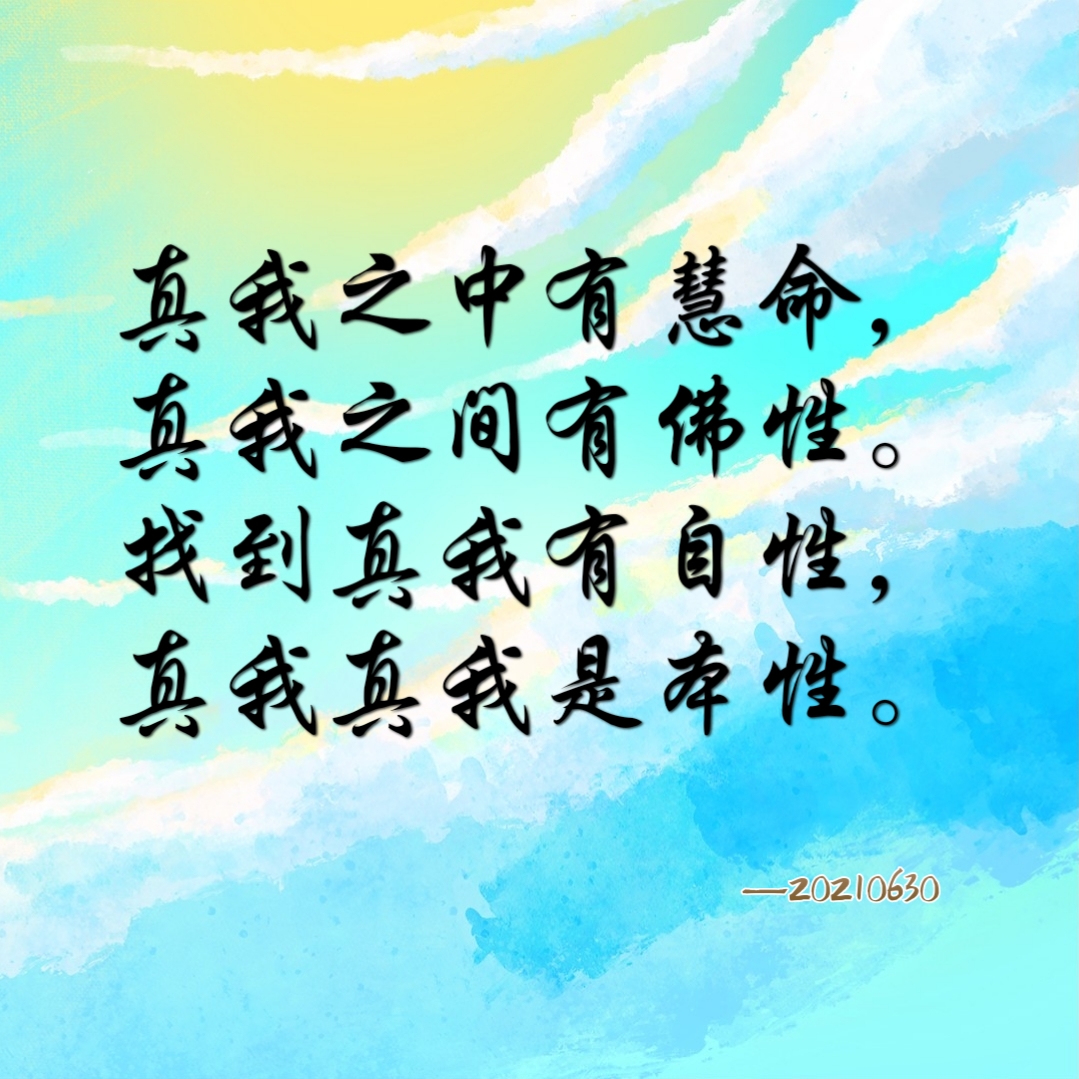 真我之中有慧命，
真我之间有佛性。
找到真我有自性，
真我真我是本性。
—20210630